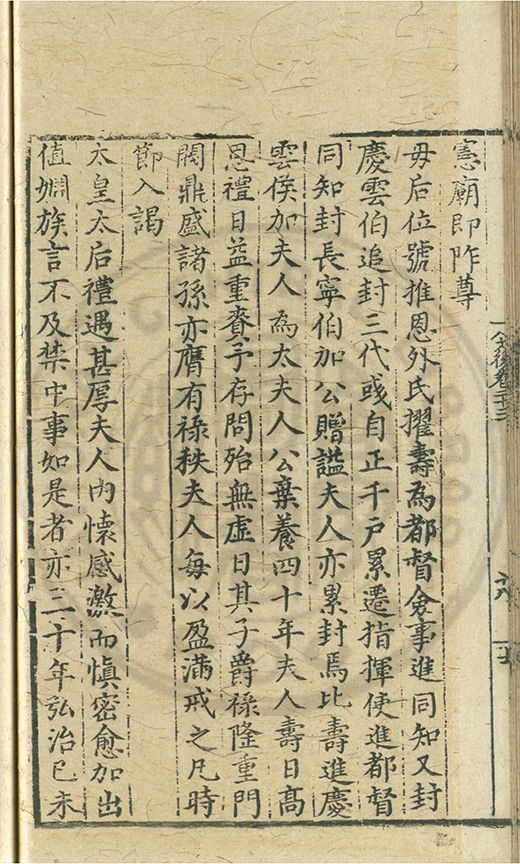 憲廟即阼尊
母后位號推恩外氏擢壽為都督僉事進同知又封
慶雲伯追封三代彧自正千戶累遷指揮使進都督
同知封長寧伯加公贈諡夫人亦累封焉比壽進慶
雲侯加夫人為太夫人公棄養四十年夫人壽日高
恩禮日益重賚予存問殆無虛日其子爵祿隆重門
閥鼎盛諸孫亦膺有祿秩夫人每以盈滿戒之凡時
節入謁
太皇太后禮遇甚厚夫人內懷感激而慎密愈加出
值婣族言不及禁中事如是者亦三十年弘治己未